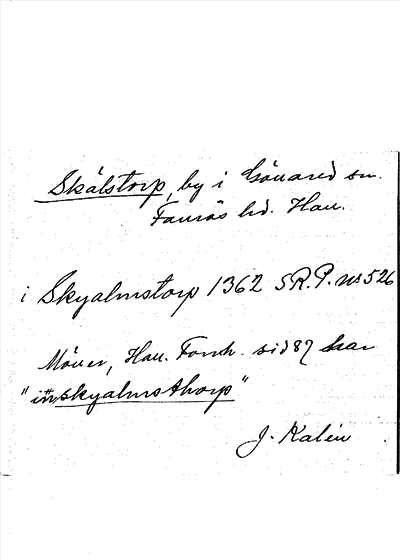 Skälstorp, by i Gönared sn.
Faurås hd. Hall.
i Skyalmstorp 1362 SRP. nr 526
Möller, Hall. Fornh. sid 87 har
"in skyalmsthorp"
J. Kalén